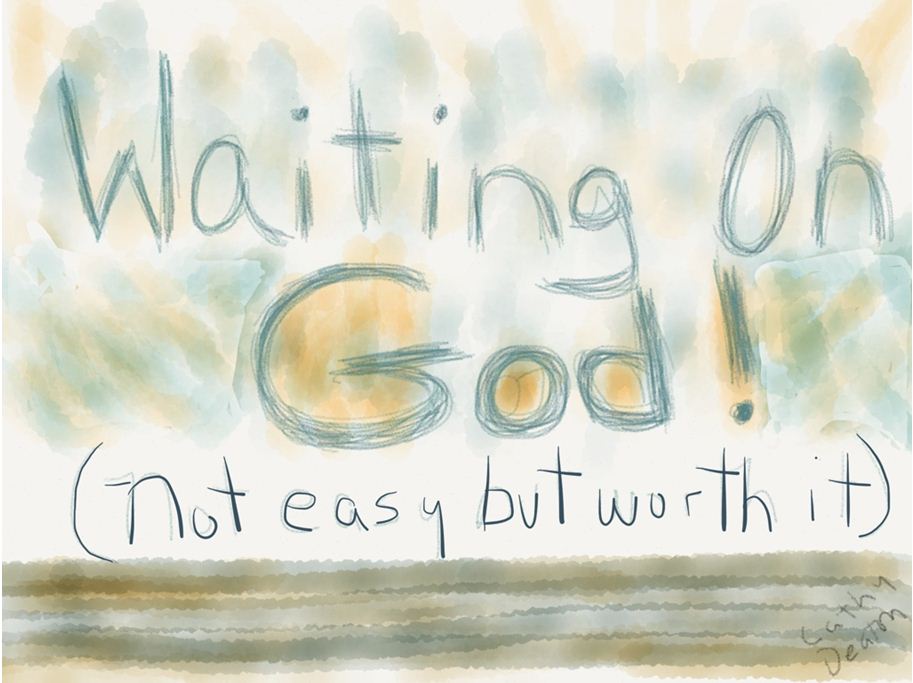 Waiting On
God!
(not easy but worth it)
Cathy
Deaton